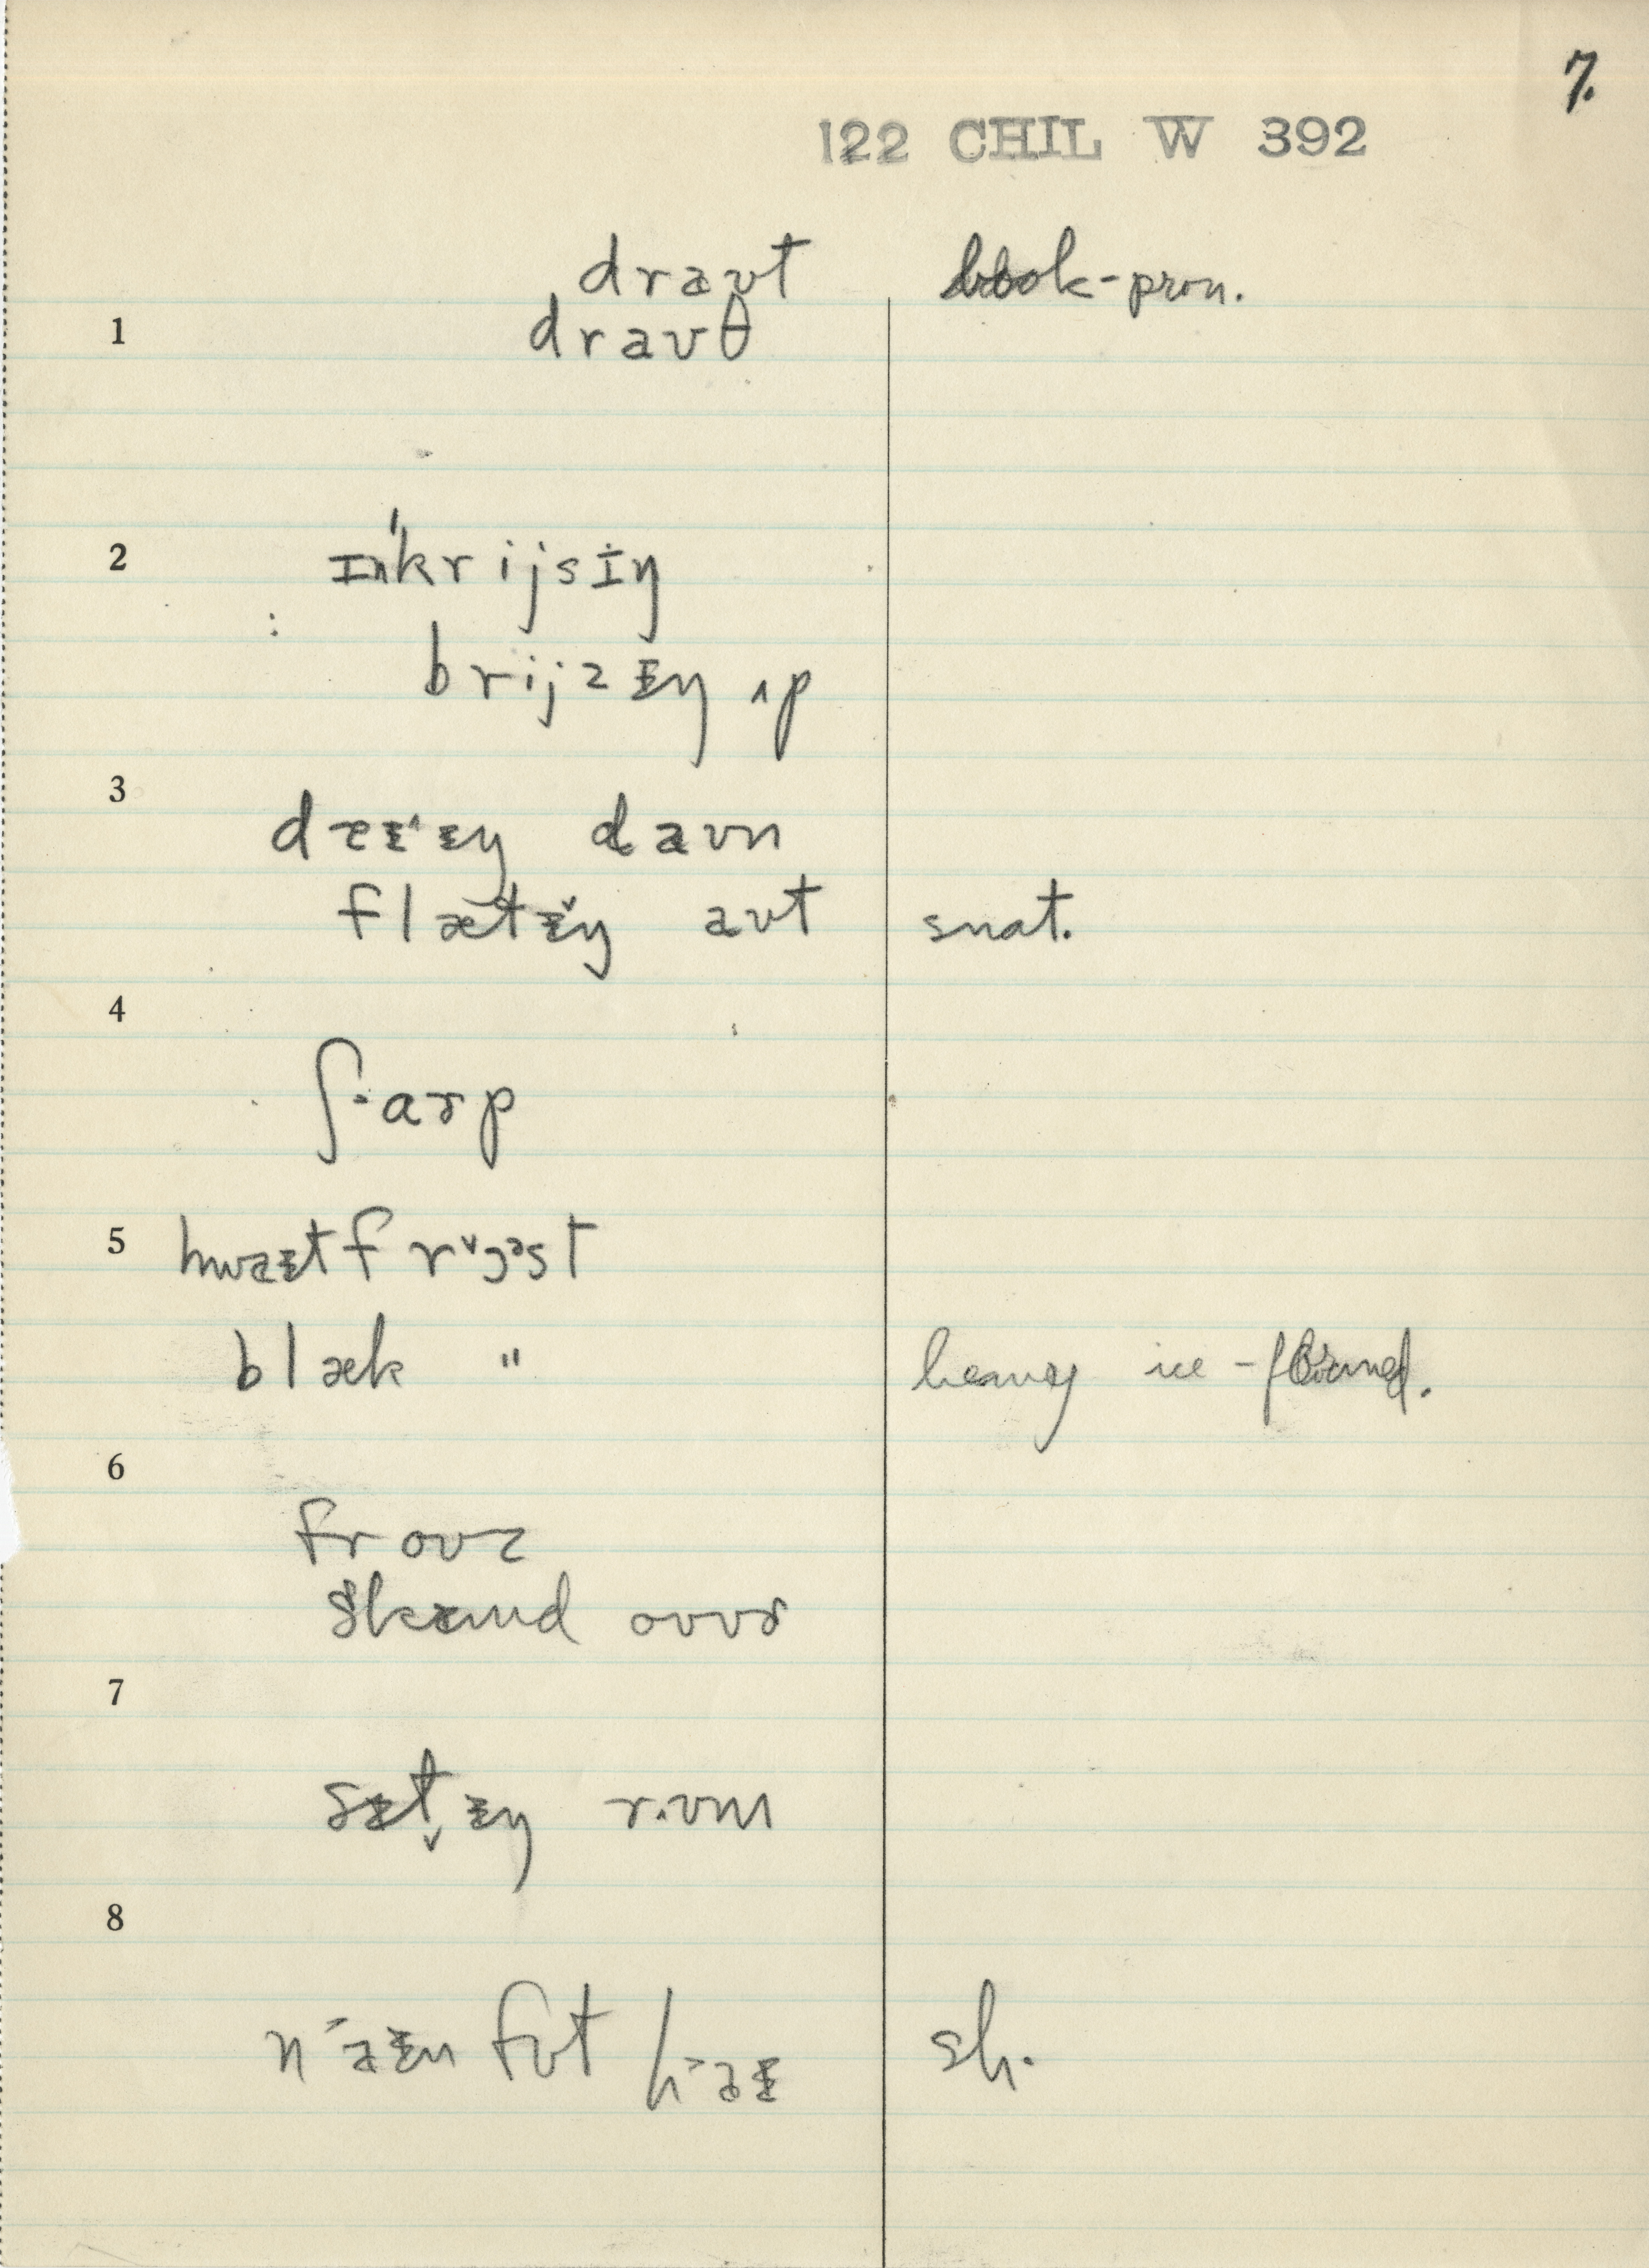 7.
122 CHIL W 392
draʊt book-pron.
1 draʊθ
2 ɪnˈkrijsɪŋ
brijzɪŋ ʌp
3 daɪˆɪŋ daʊn
flætɪŋ aʊt snat.
4
ʃ·arp
5 hwaɪt frɔᵊst
blæk " heavy ice-formed.
6
froʊz
skɪmd oʊvɚ
7
sɪtɪŋ rʊm
8
naɪn fʊt haɪ sh.